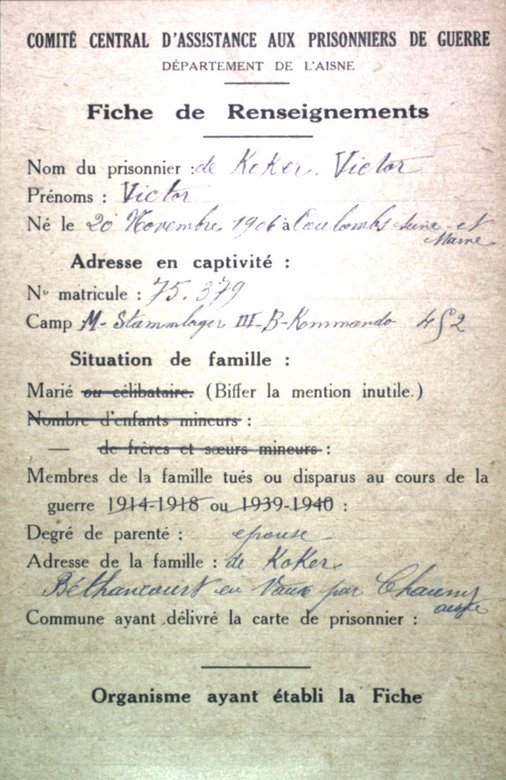 COMITÉ CENTRAL D'ASSISTANCE AUX PRISONNIERS DE GUERRE
DÉPARTEMENT DE L'AISNE
Fiche de Renseignements
Nom du prisonnier : de Koker. Victor
Prénoms : Victor
Né le 20 Novembre 1906 à Coulombs Seine et
Marne
Adresse en captivité :
No matricule : 75.379
Camp M- Stammlager III-B-Kommando 452
Situation de famille :
Marié ou célibataire. (Biffer la mention inutile.)
Nombre d'enfants mineurs :
— de frères et sœurs mineurs :
Membres de la famille tués ou disparus au cours de la
guerre 1914-1918 ou 1939-1940 :
Degré de parenté : epouse
Adresse de la famille : de Koker
Béthancourt en Vaux par Chauny
aisne
Commune ayant délivré la carte de prisonnier :
Organisme ayant établi la Fiche